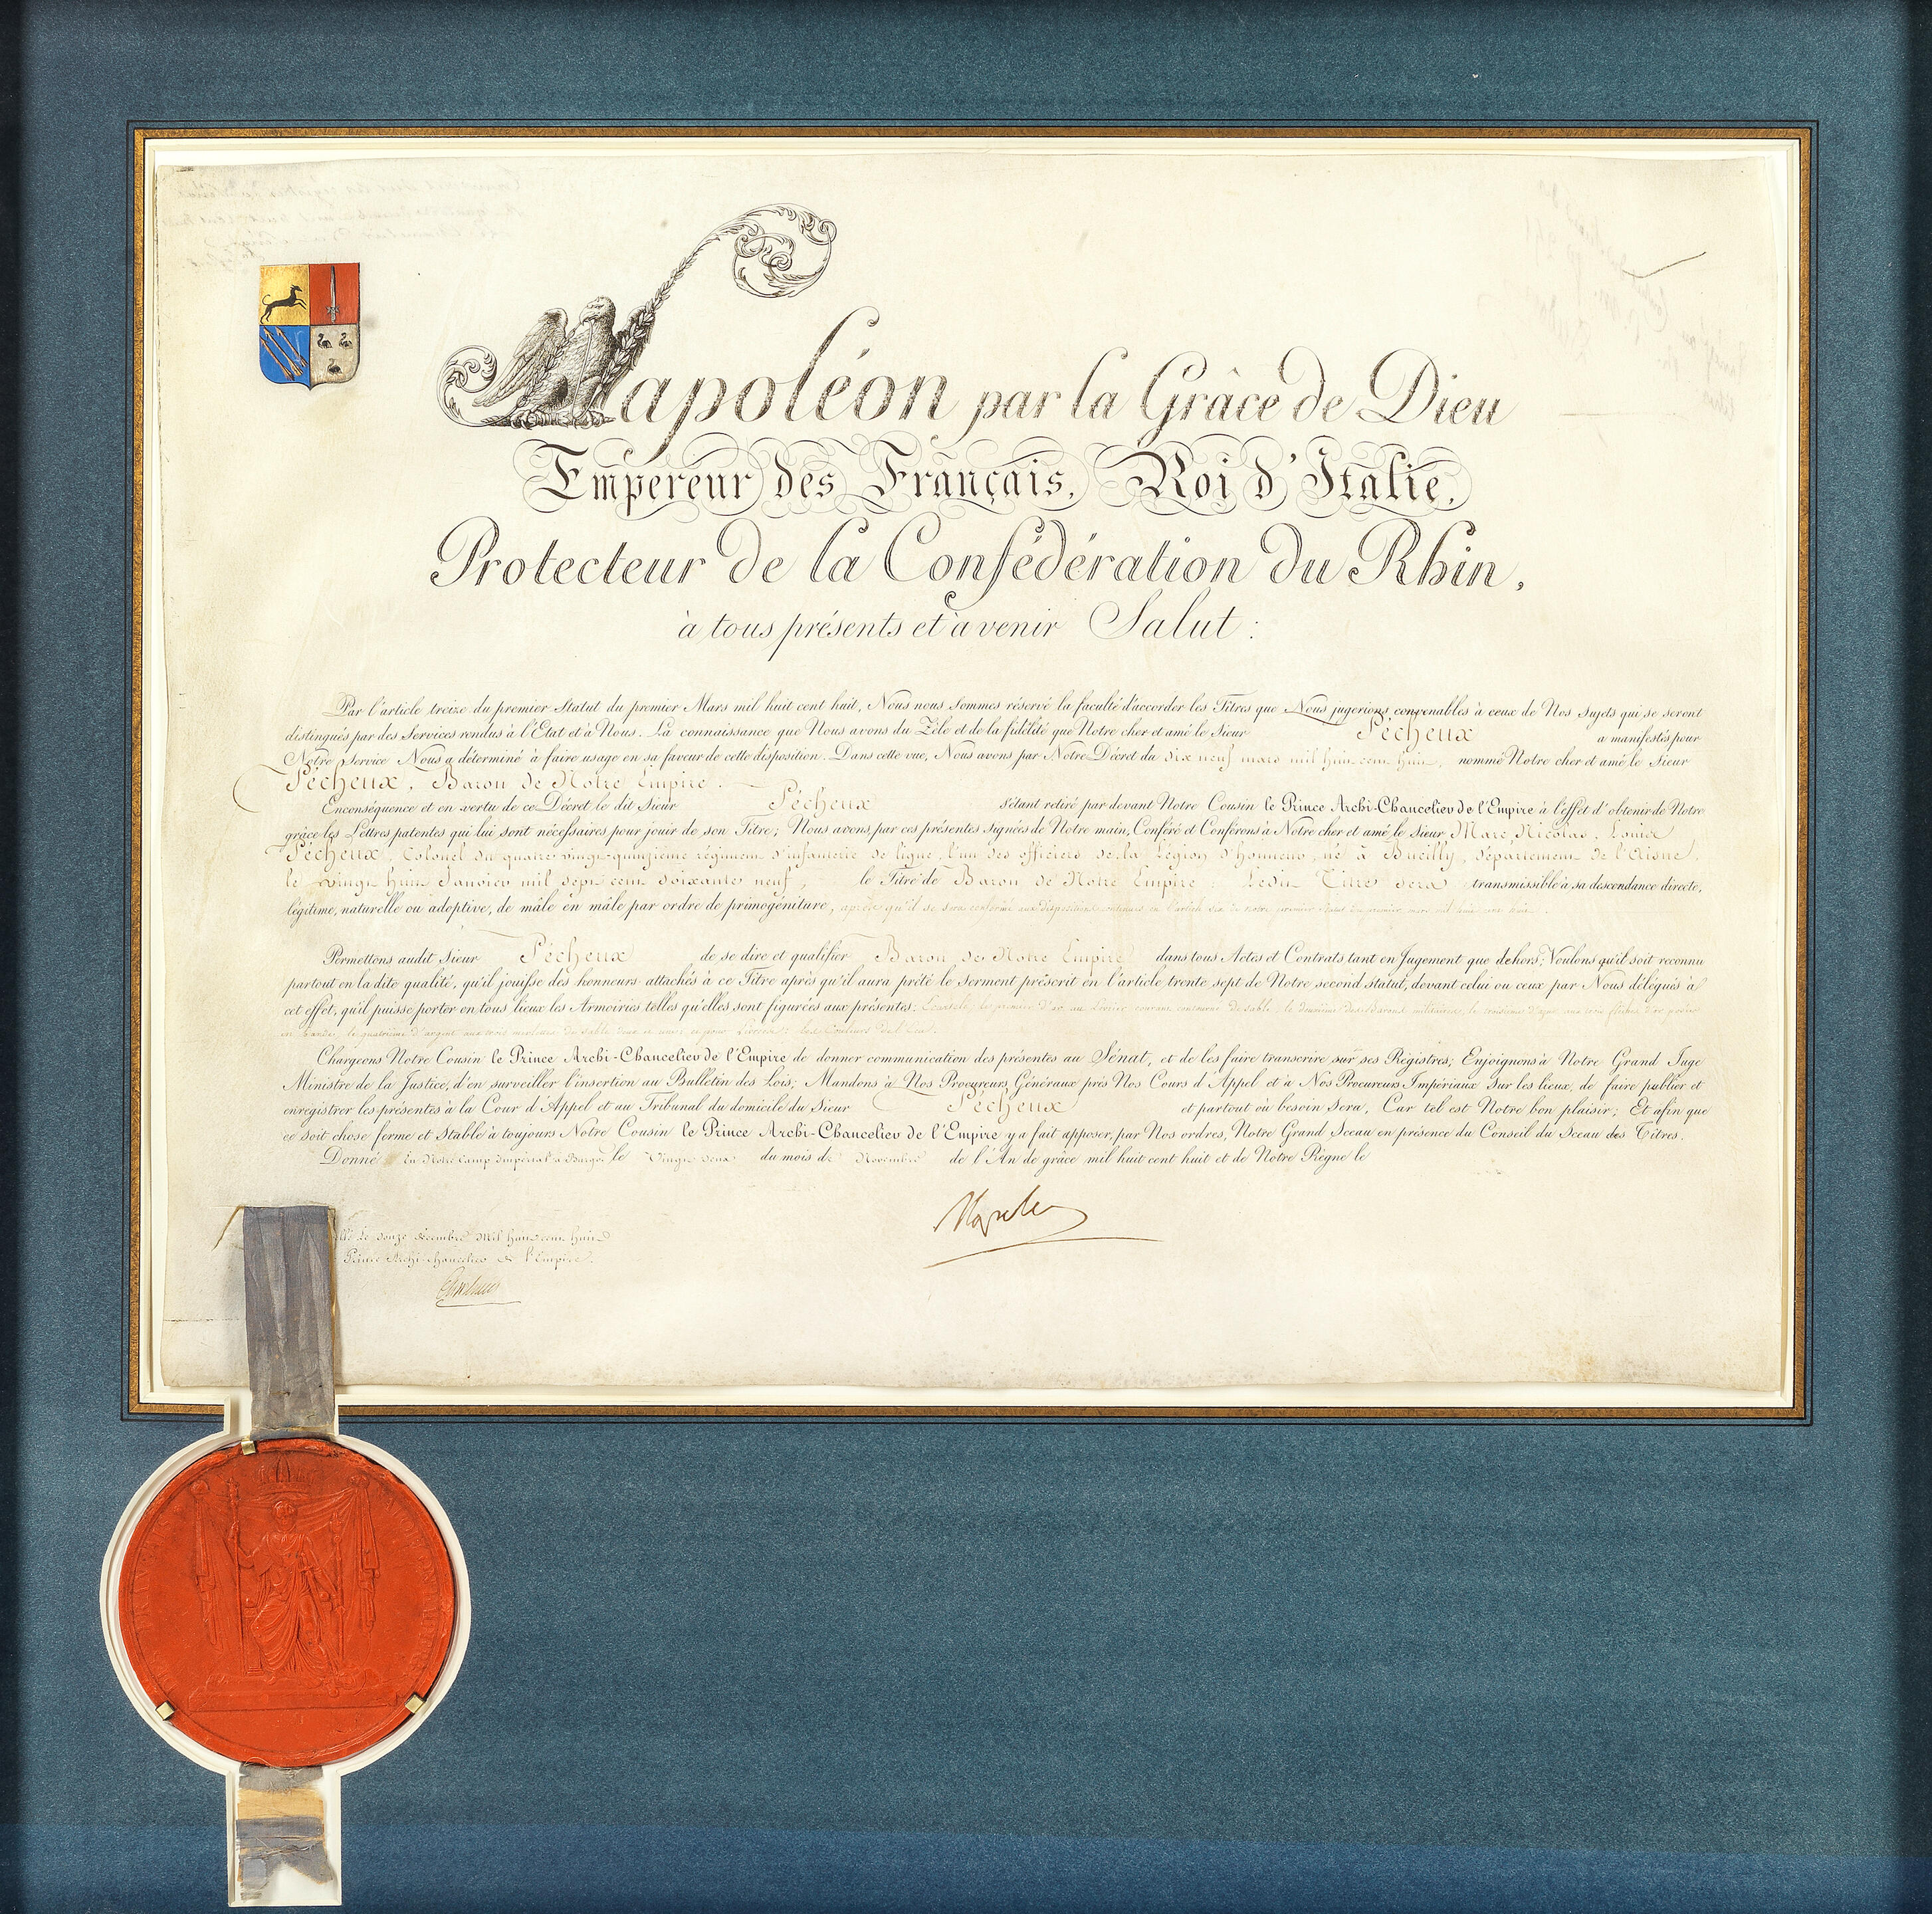 Napoléon par la Grâce de Dieu
Empereur des Français, Roi d'Italie,
Protecteur de la Confédération du Rhin,
à tous présents et à venir Salut :
Par l'article treize du premier Statut du premier Mars mil huit cent huit, Nous nous sommes réservé la faculté d'accorder les Titres que Nous jugerions convenables à ceux de Nos Sujets qui se seront
distingués par des Services rendus à l'Etat et à Nous. La connaissance que Nous avons du Zèle et de la fidélité que Notre cher et amé le Sieur Pécheux a manifestés pour
Notre Service Nous a déterminé à faire usage en sa faveur de cette disposition. Dans cette vue, Nous avons par Notre Décret du dix neuf mars mil huit cent huit, nommé Notre cher et amé le Sieur
Pécheux, Baron de Notre Empire.
En conséquence et en vertu de ce Décret le dit Sieur Pécheux s'étant retiré par devant Notre Cousin le Prince Archi-Chancelier de l'Empire à l'effet d'obtenir de Notre
grâce les Lettres patentes qui lui sont nécessaires pour jouir de son Titre; Nous avons, par ces présentes signées de Notre main, Conféré et Conférons à Notre cher et amé le Sieur Marc Nicolas Louis
Pécheux, Colonel du quatre vingt quinzième régiment d'infanterie de ligne, l'un des officiers de la Légion d'honneur, né à Bucilly, département de l'Aisne,
le vingt huit Janvier mil sept cent soixante neuf, le Titre de Baron de Notre Empire. Ledit Titre sera transmissible à sa descendance directe,
légitime, naturelle ou adoptive, de mâle en mâle par ordre de primogéniture, après qu'il se sera conformé aux dispositions contenues en l'article dix de notre premier statut du premier mars mil huit cent huit.
Permettons audit Sieur Pécheux de se dire et qualifier Baron de Notre Empire dans tous Actes et Contrats tant en Jugement que dehors; Voulons qu'il soit reconnu
partout en la dite qualité, qu'il jouisse des honneurs attachés à ce Titre après qu'il aura prêté le Serment préscrit en l'article trente sept de Notre second statut, devant celui ou ceux par Nous délégués à
cet effet; qu'il puisse porter en tous lieux les Armoiries telles qu'elles sont figurées aux présentes: Ecartelé, le premier d'or au Lévrier courant contourné de sable, le deuxième des Barons militaires, le troisième d'azur aux trois flèches d'or posées
en bande, le quatrième d'argent aux trois merlettes de sable deux et une; et pour Livrées: les Couleurs de l'Ecu.
Chargeons Notre Cousin le Prince Archi-Chancelier de l'Empire de donner communication des présentes au Sénat, et de les faire transcrire sur ses Régistres; Enjoignons à Notre Grand Juge
Ministre de la Justice, d'en surveiller l'insertion au Bulletin des Lois; Mandons à Nos Procureurs Généraux près Nos Cours d'Appel et à Nos Procureurs Impériaux sur les lieux, de faire publier et
enregistrer les présentes à la Cour d'Appel et au Tribunal du domicile du Sieur Pécheux et partout où besoin sera, Car tel est Notre bon plaisir; Et afin que
ce soit chose ferme et Stable à toujours Notre Cousin le Prince Archi-Chancelier de l'Empire y a fait apposer, par Nos ordres, Notre Grand Sceau en présence du Conseil du Sceau des Titres.
Donné en Notre Camp Impérial à Burgos le Vingt deux du mois de Novembre de l'An de grâce mil huit cent huit et de Notre Règne le
Napoleon
le douze décembre Mil huit cent huit
Prince Archi-chancelier de l'Empire.